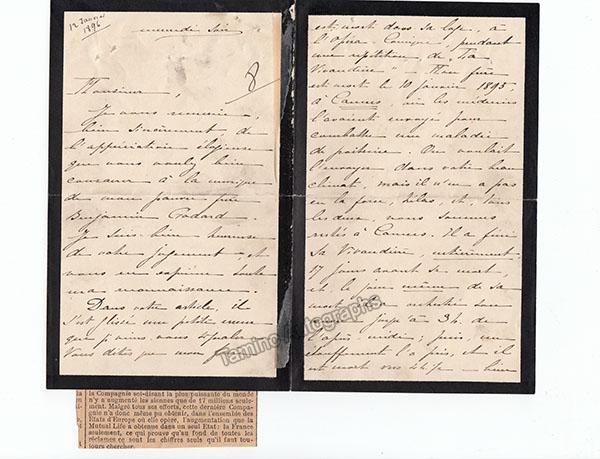 12 Janvier
1896
mercredi soir
8
Monsieur,
Je vous remercie
bien sincèrement de
l'appréciation élogieuse
que vous voulez bien
consacrer à la musique
de mon pauvre frère
Benjamin Godard.
Je suis bien heureuse
de votre jugement et
vous en exprime toute
ma reconnaissance.
Dans votre article, il
s'est glissé une petite erreur
que je viens vous signaler
Vous dites que mon frère
est mort dans sa loge, à
l'Opéra-Comique, pendant
une répétition de "La
Vivandière" – Mon frère
est mort le 10 janvier 1895,
à Cannes, où les médecins
l'avaient envoyé pour
combattre une maladie
de poitrine. On voulait
l'envoyer dans votre beau
climat, mais il n'en a pas
eu la force, hélas, et, tous
les deux, nous sommes
restés à Cannes. Il a fini
sa Vivandière, entièrement,
17 jours avant sa mort,
et, le jour même de sa
mort
jusqu'à 3 h. de
l'après-midi, puis, un
étouffement l'a pris, et il
est mort
Tamino Autographs
la Compagnie soi-disant la plus puissante du monde
n'y a augmenté les siennes que de 17 millions seule-
ment. Malgré tous ses efforts, cette dernière Compa-
gnie n'a donc même pu obtenir, dans l'ensemble des
Etats d'Europe où elle opère, l'augmentation que la
Mutual Life a obtenue dans un seul Etat : la France
seulement, ce qui prouve qu'au fond de toutes les
réclames ce sont les chiffres seuls qu'il faut tou-
jours chercher.